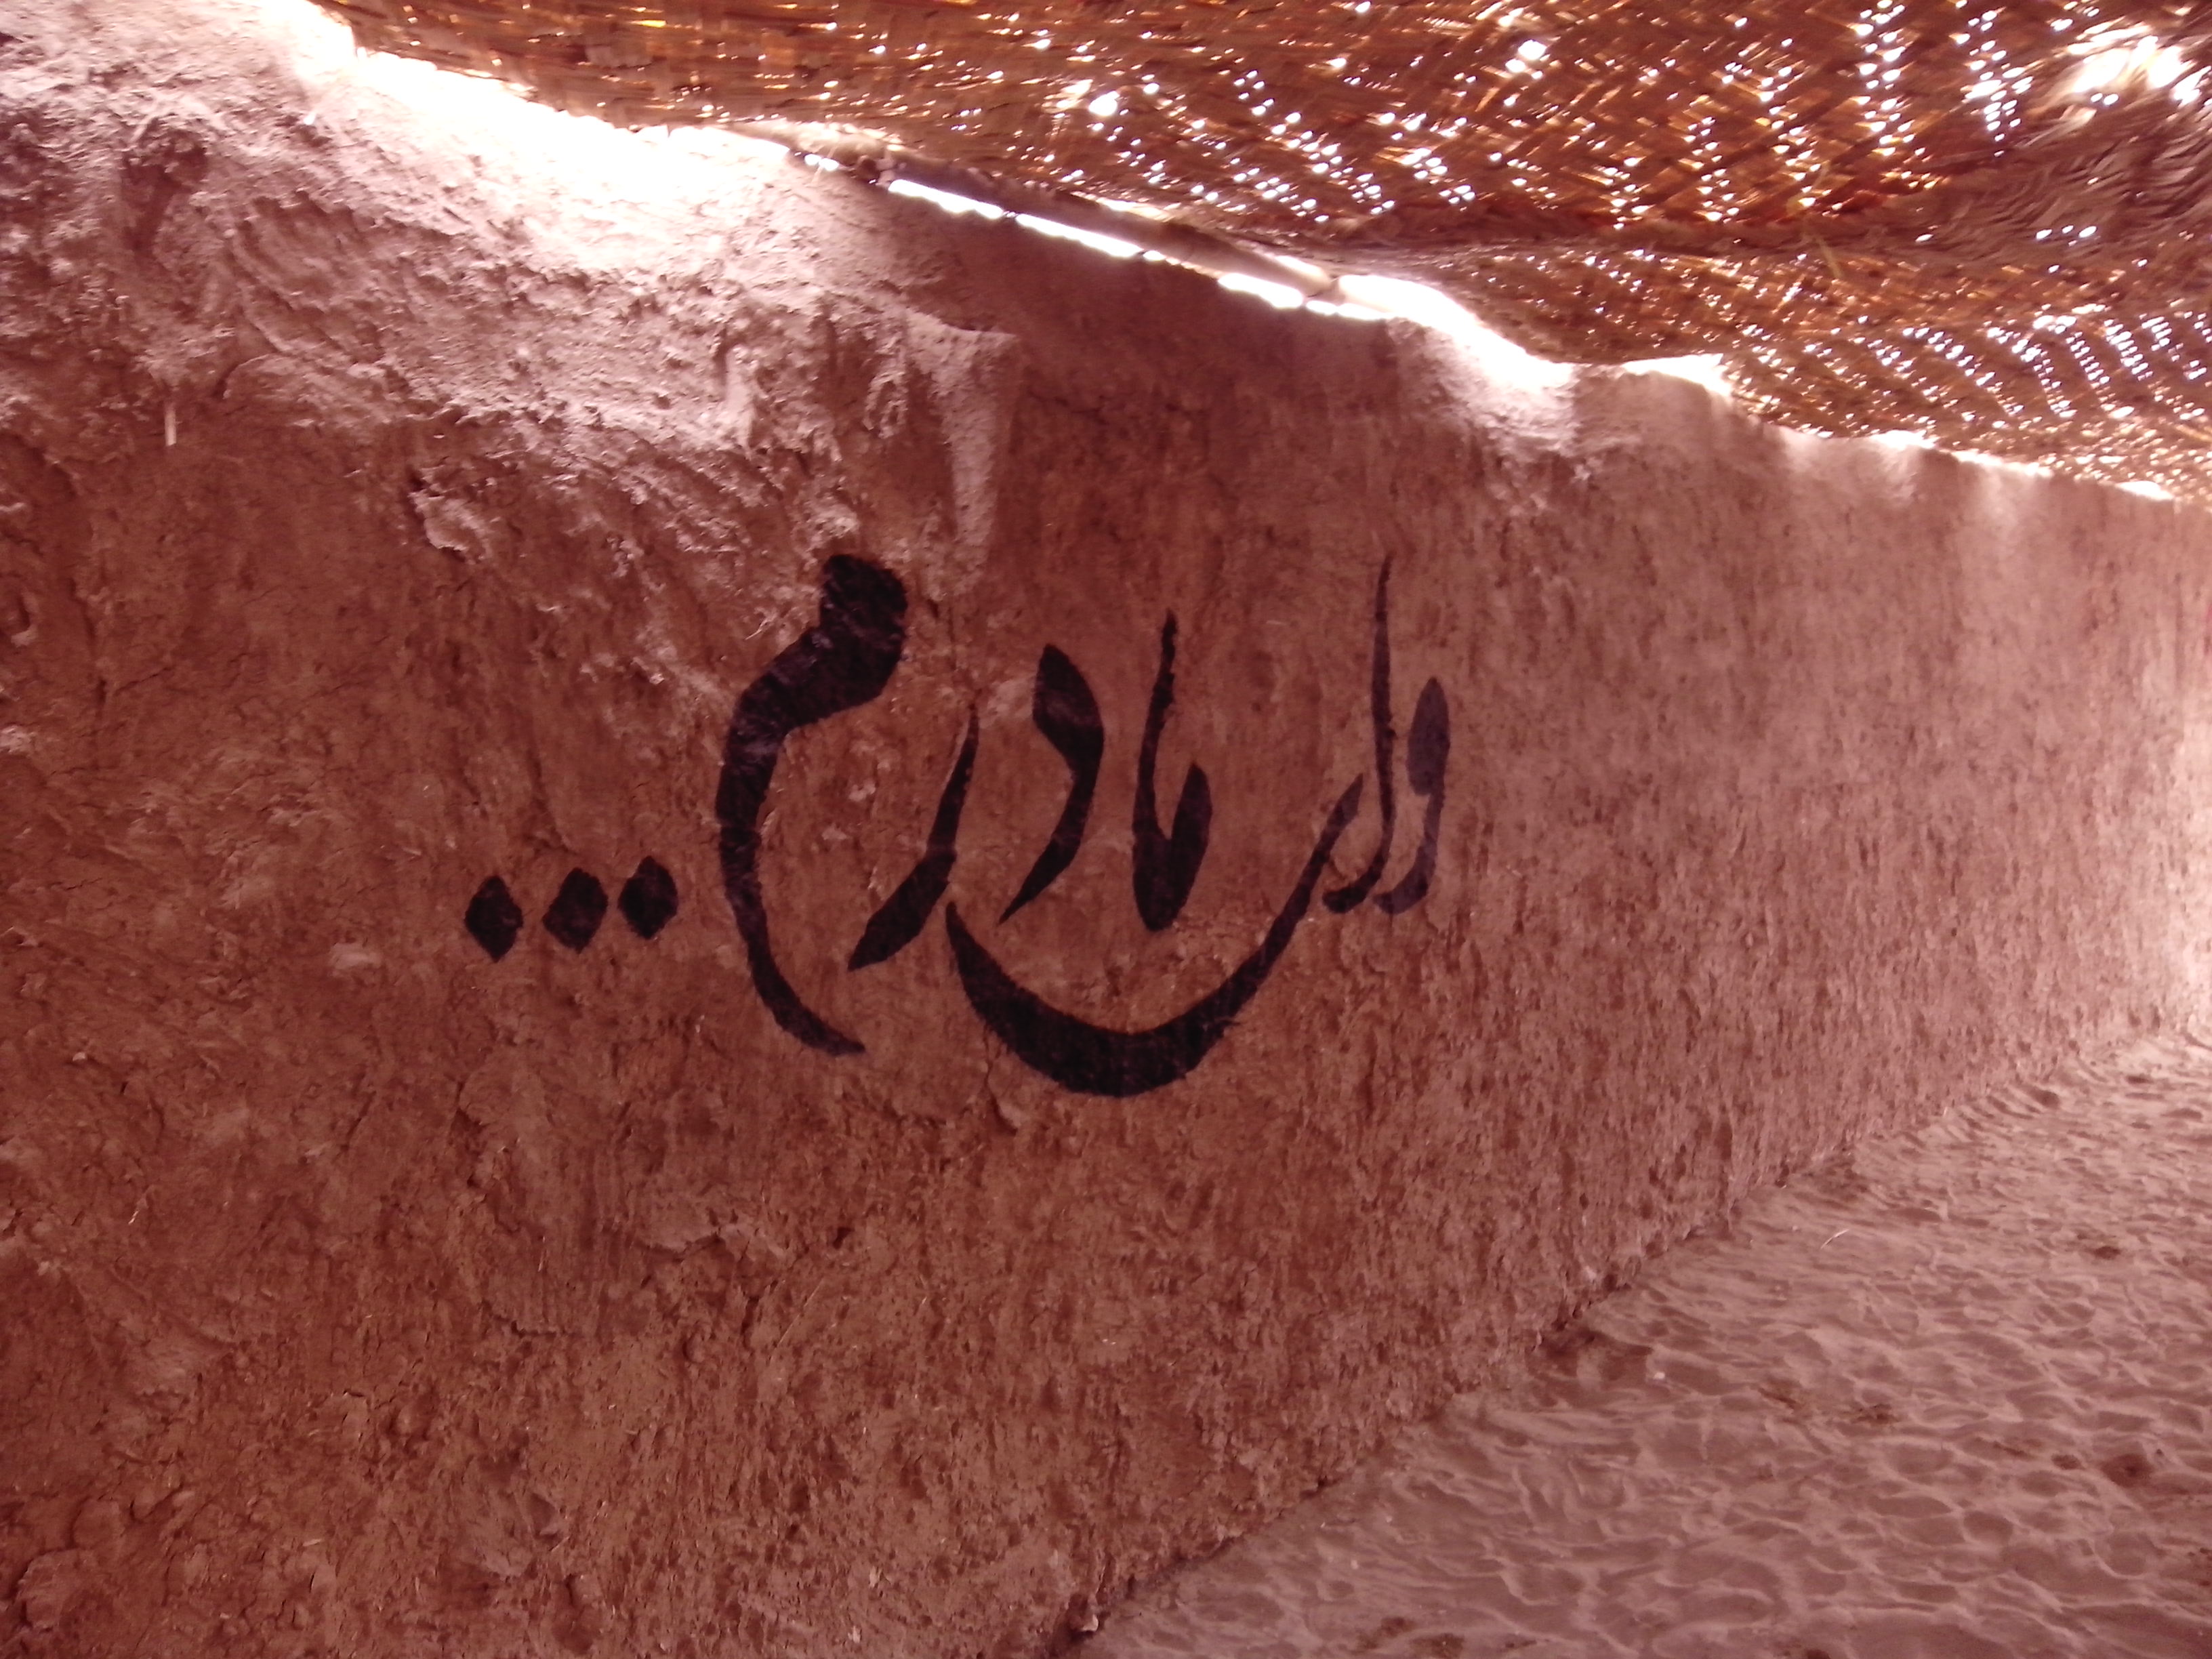 وای مادرم...